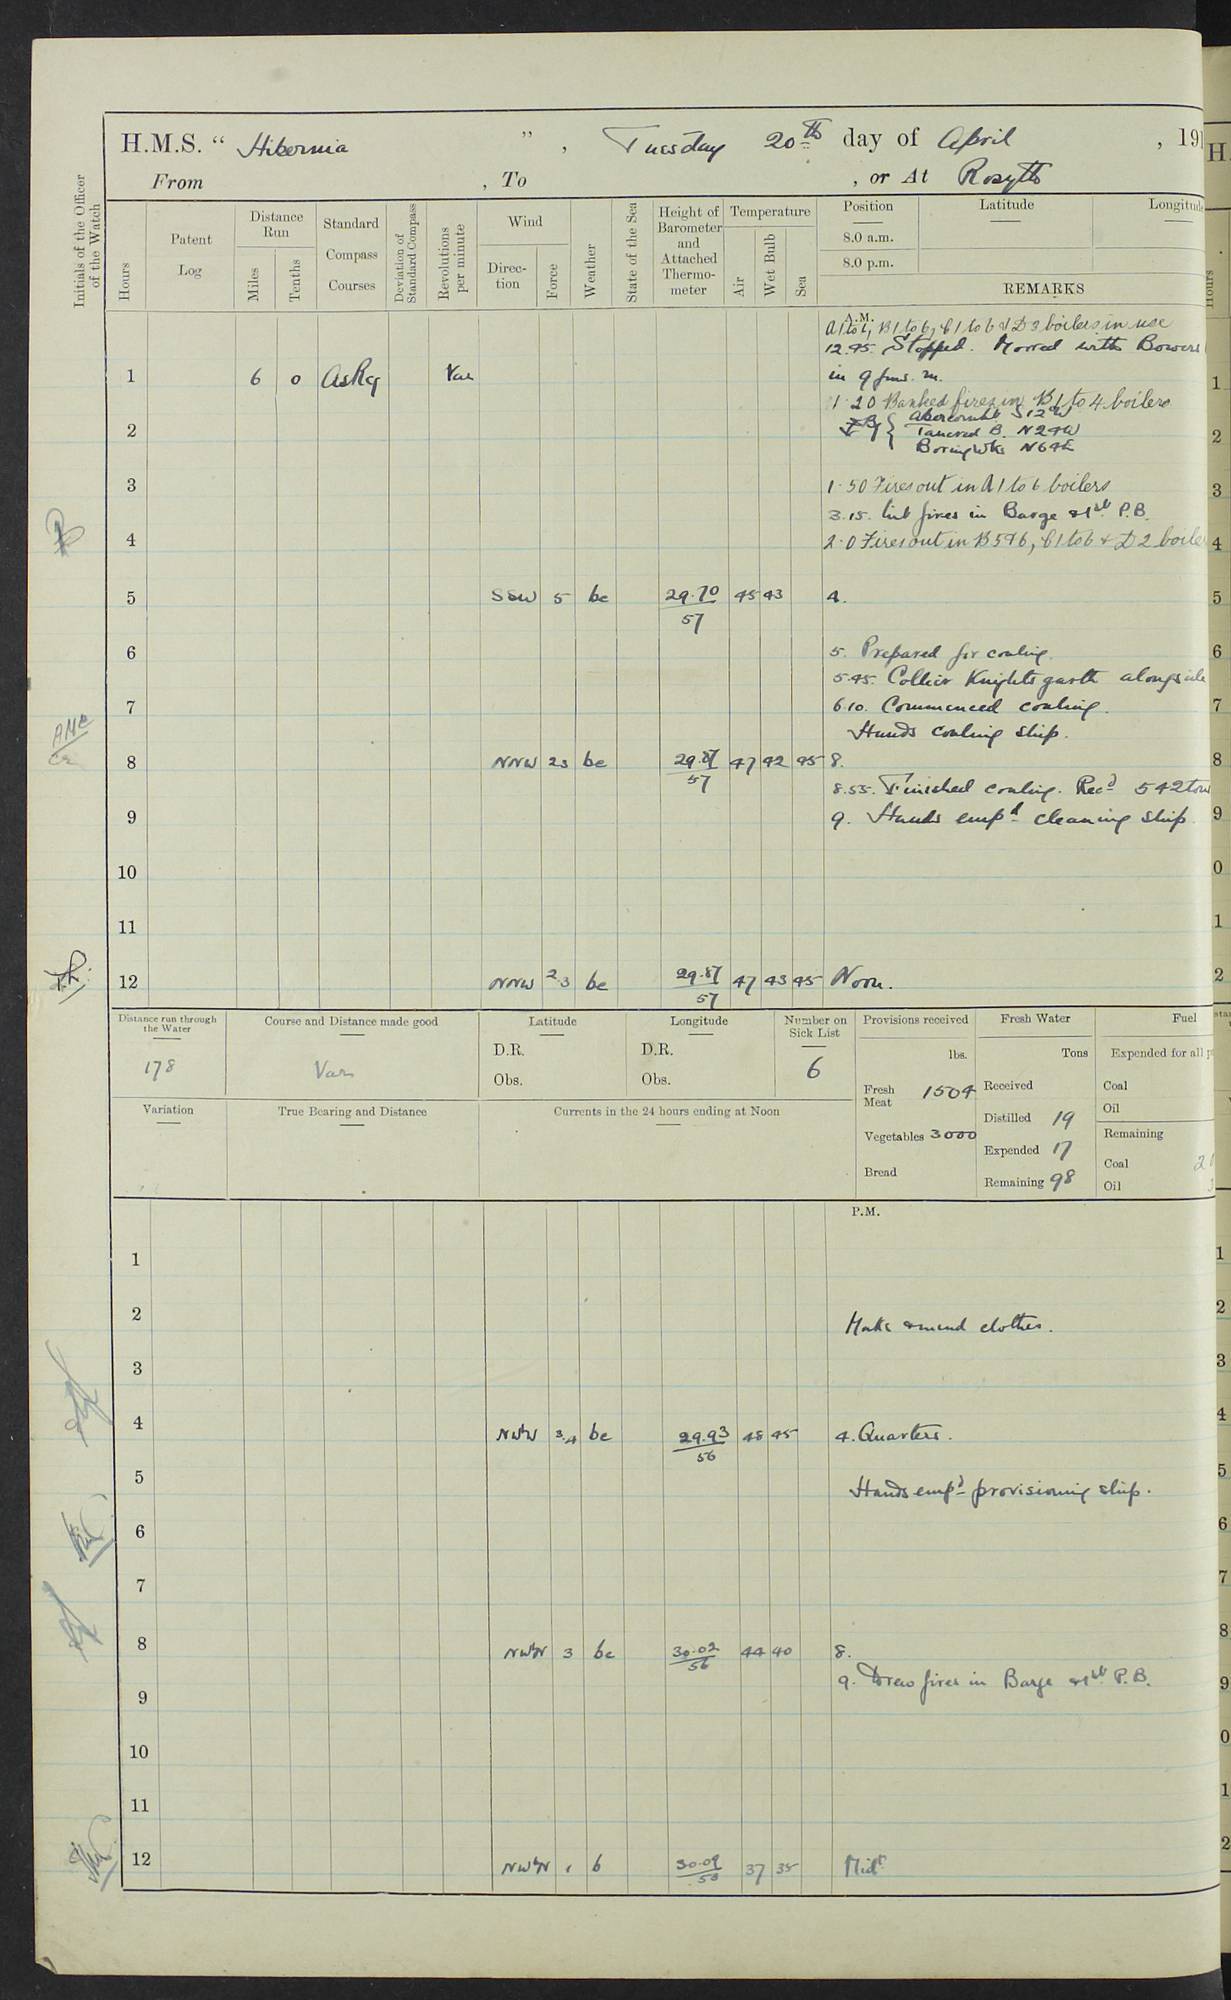 H.M.S. " Hibernia ", Tuesday 20th day of April , 191
From , To , or At Rosyth
Initials of the Officer of the Watch
Hours Patent Log Distance Run Miles Tenths Standard Compass Courses Deviation of Standard Compass Revolutions per minute Wind Direction Force Weather State of the Sea Height of Barometer and Attached Thermometer Temperature Air Wet Bulb Sea Position Latitude Longitude
8.0 a.m.
8.0 p.m.
REMARKS
A.M.
A 1 to 6, B 1 to 6, C 1 to 6 & D 3 boilers in use
12.45. Stopped. Moored with Bowers
1 6 0 As Req Var in 9 fms. m.
1.20 Banked fires in B 1 to 4 boilers
Abercromby S 12 W
2 Tancred B. N 24 W
Boring Wks N 64 E
3 1.50 Fires out in A 1 to 6 boilers
3.15. Lit fires in Barge & 1st P.B.
4 2.0 Fires out in B 5 & 6, C 1 to 6 & D 2 boile
5 SSW 5 bc 29.70 57 45 43 4.
6 5. Prepared for coaling.
5.45. Collier Knightsgarth alongside
7 6.10. Commenced coaling.
Hands coaling ship.
8 NNW 2 3 bc 29.87 57 47 42 45 8.
8.55. Finished coaling. Recd 542 tons
9 9. Hands empd cleaning ship.
10
11
12 NNW 2.3 bc 29.87 57 47 43 45 Noon.
Distance run through the Water Course and Distance made good Latitude Longitude Number on Sick List Provisions received Fresh Water Fuel
178 Var D.R. D.R. 6 lbs. Tons Expended for all p
Obs. Obs. Fresh Meat 1504 Received Coal
Variation True Bearing and Distance Currents in the 24 hours ending at Noon Distilled 19 Oil
Vegetables 3000 Expended 17 Remaining
Bread Remaining 98 Coal 2
Oil
P.M.
1
2 Make & mend clothes.
3
4 NWW 3.4 bc 29.93 56 48 45 4. Quarters.
5 Hands empd provisioning ship.
6
7
8 NWbN 3 bc 30.02 56 44 40 8.
9 9. Drew fires in Barge & 1st P.B.
10
11
12 NWbN 1 b 30.09 53 37 35 Midt